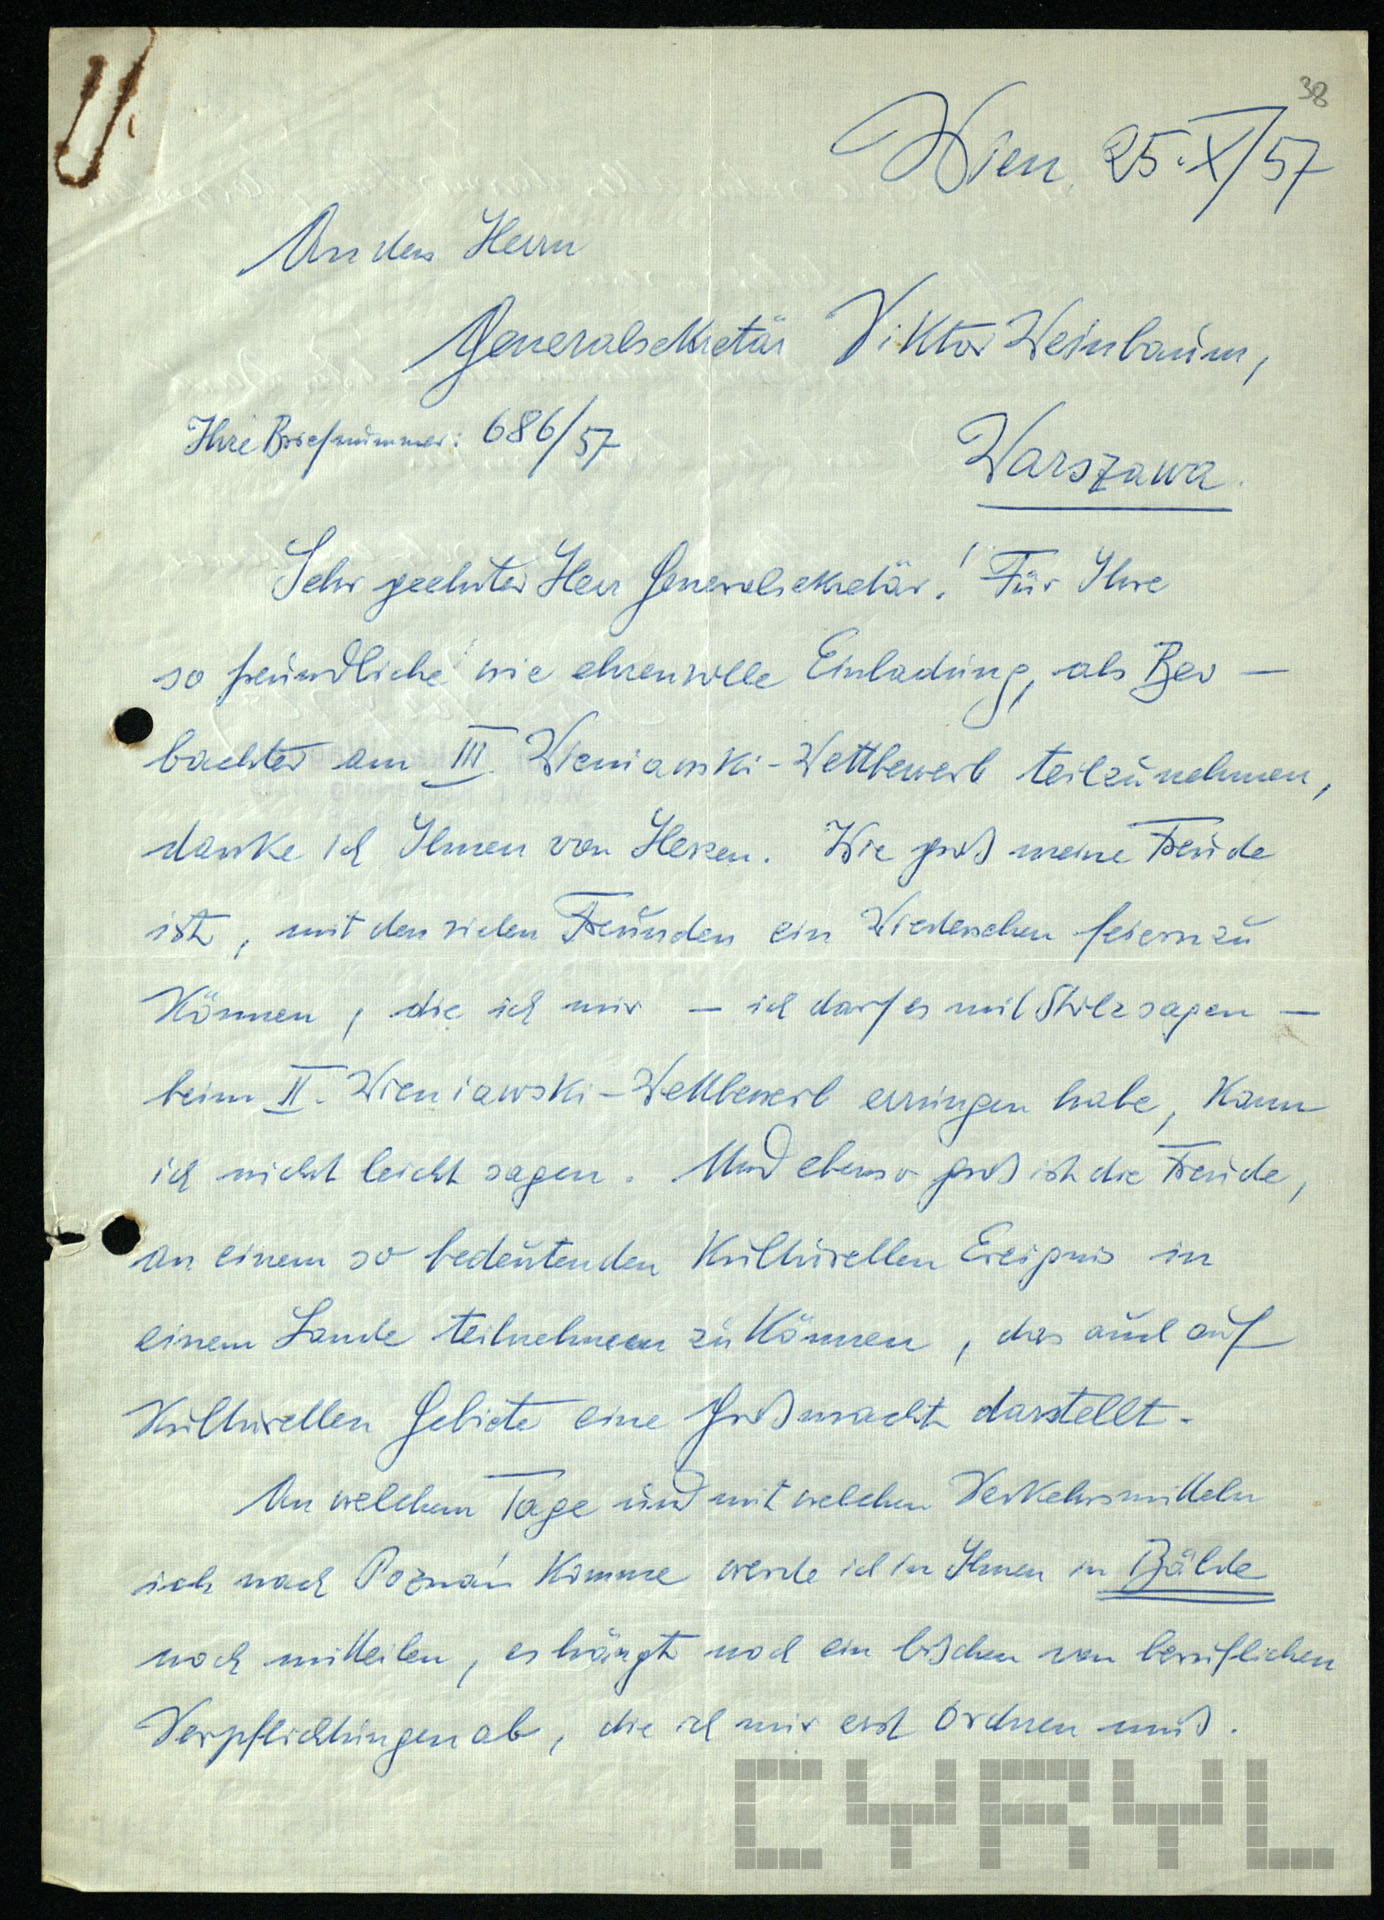 38
Wien, 25.X/57
An den Herrn
Generalsekretär Viktor Weinbaum,
Ihre Briefnummer: 686/57
Warszawa.
Sehr geehrter Herr Generalsekretär! Für Ihre
so freundliche wie ehrenvolle Einladung, als Beo-
bachter am III. Wieniawski-Wettbewerb teilzunehmen,
danke ich Ihnen von Herzen. Wie groß meine Freude
ist, mit den vielen Freunden ein Wiedersehen feiern zu
können, die ich mir – ich darf es mit Stolz sagen –
beim II. Wieniawski-Wettbewerb errungen habe, kann
ich nicht leicht sagen. Und ebenso groß ist die Freude,
an einem so bedeutenden kulturellen Ereignis in
einem Lande teilnehmen zu können, das auch auf
kulturellen Gebiete eine Großmacht darstellt.
An welchem Tage und mit welchen Verkehrsmitteln
ich nach Poznań komme werde ich Ihnen in Bälde
noch mitteilen, es hängt noch ein bißchen von beruflichen
Verpflichtungen ab, die ich mir erst ordnen muß.
CYRYL